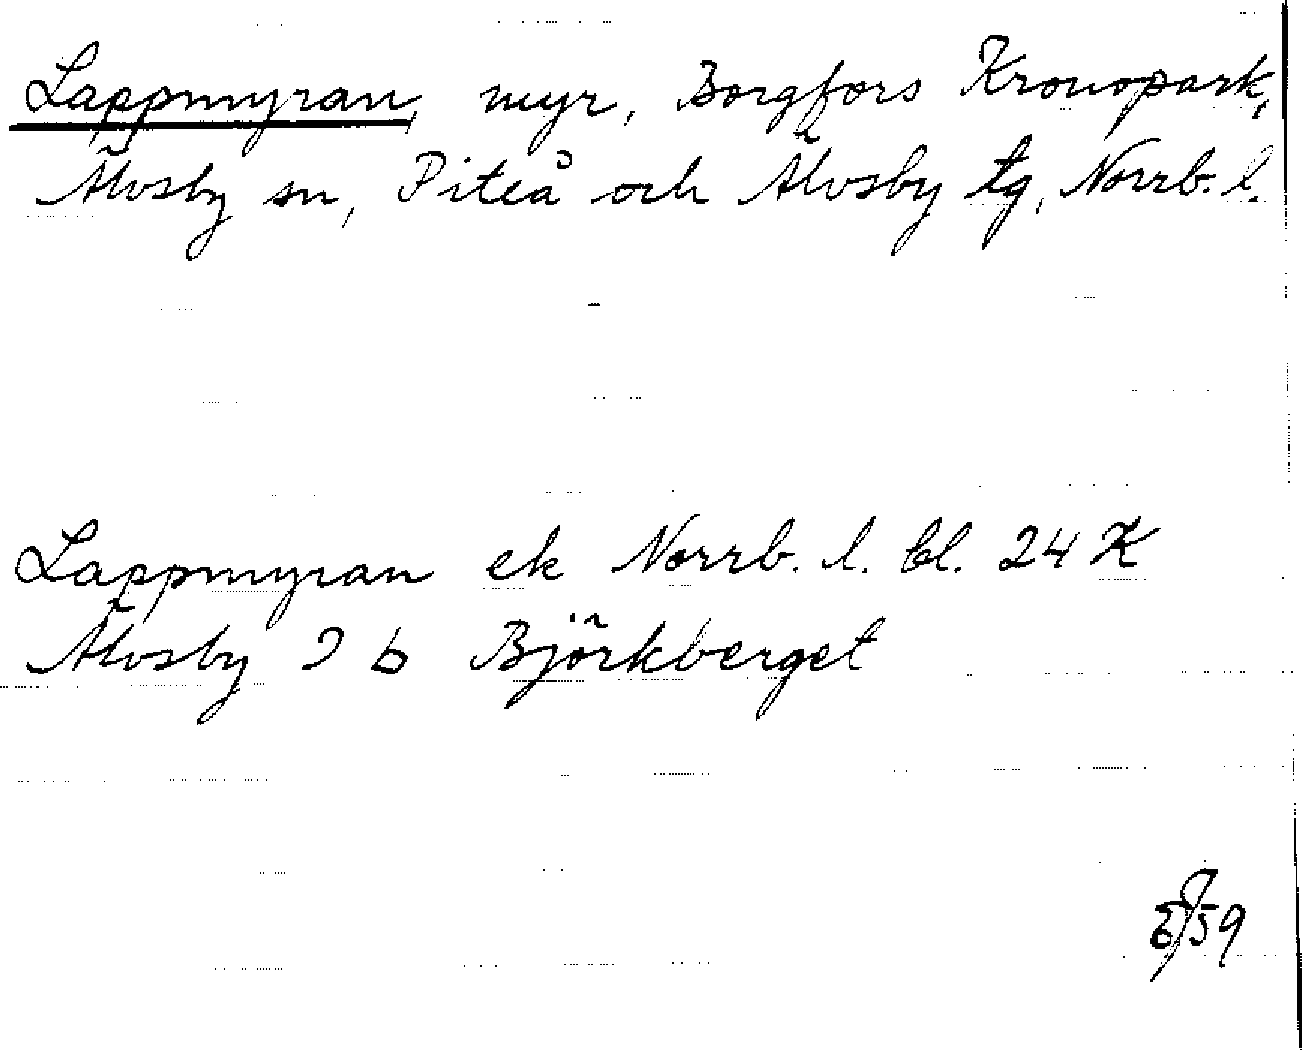 Lappmyran, myr, Borgfors Kronopark,
Älvsby sn, Piteå och Älvsby tg, Norrb. l.
Lappmyran ek Norrb. l. bl. 24 K
Älvsby 2 b Björkberget
59